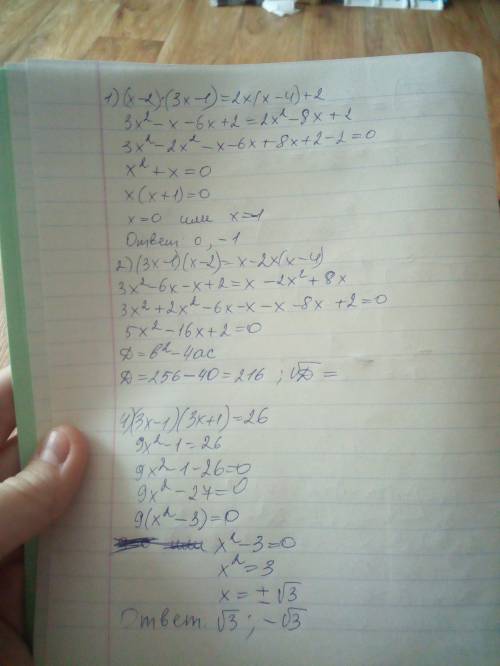 1) (x-2)·(3x-1)=2x(x-4)+2
3x²-x-6x+2=2x²-8x+2
3x²-2x²-x-6x+8x+2-2=0
x²+x=0
x(x+1)=0
x=0 или x=-1
Ответ 0, -1
2) (3x-1)(x-2)=x-2x(x-4)
3x²-6x-x+2=x-2x²+8x
3x²+2x²-6x-x-x-8x+2=0
5x²-16x+2=0
D=b²-4ac
D=256-40=216 ; √D =
4) (3x-1)(3x+1)=26
9x²-1=26
9x²-1-26=0
9x²-27=0
9(x²-3)=0
x²-3=0
x²=3
x=±√3
Ответ. √3 ; -√3